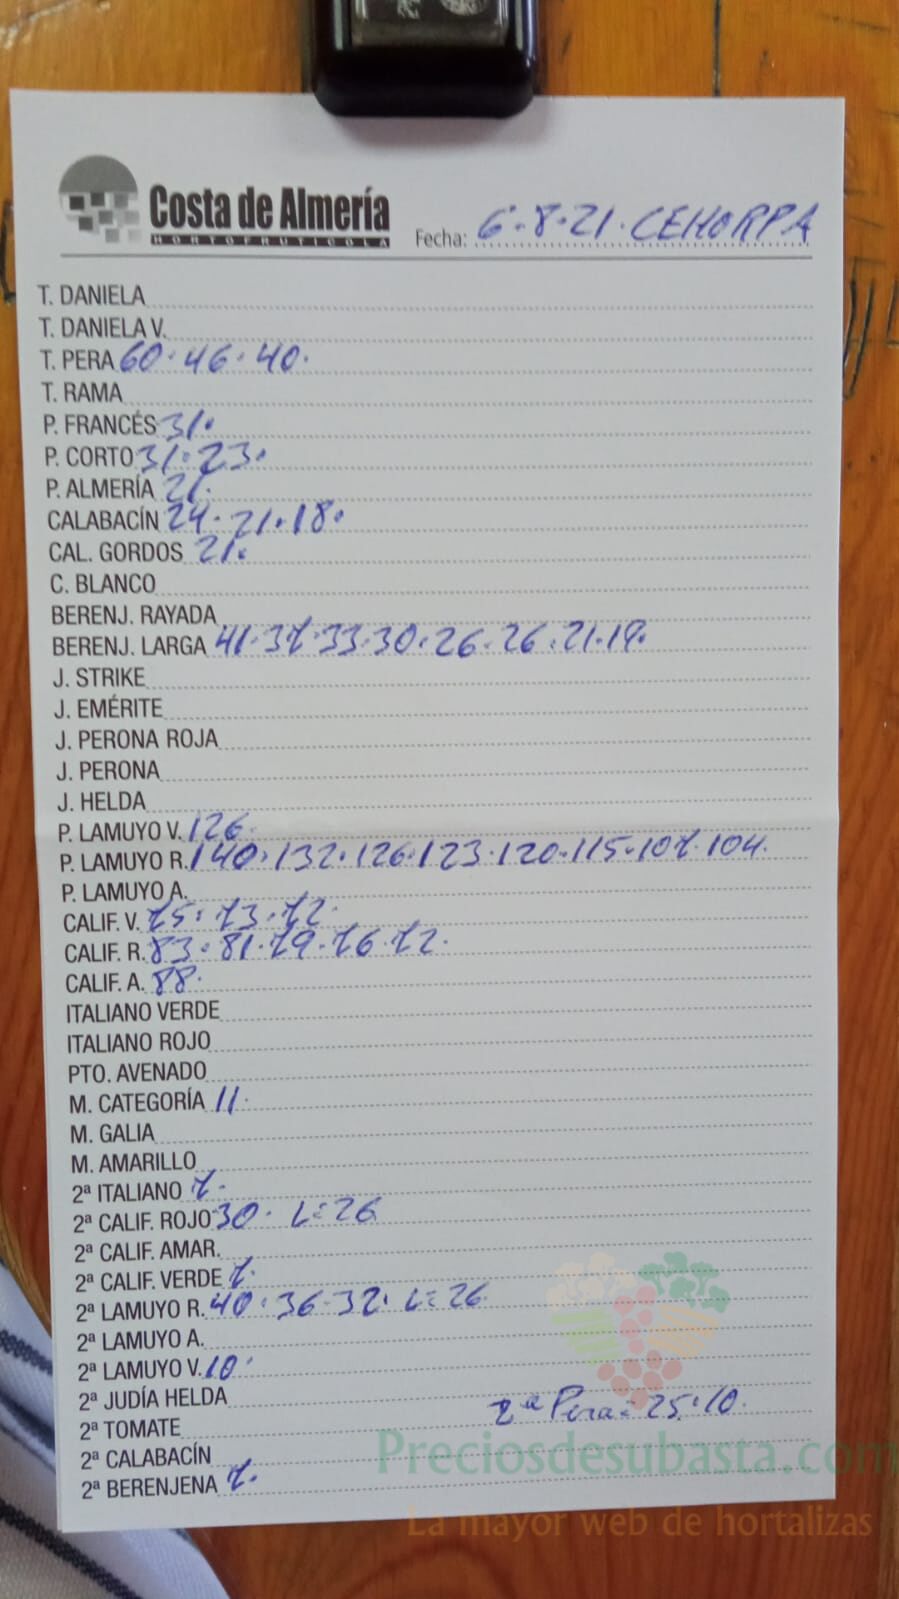 Costa de Almería
HORTOFRUTÍCOLA
Fecha: 6-8-21. CEHORPA
T. DANIELA
T. DANIELA V.
T. PERA 60. 46. 40.
T. RAMA
P. FRANCÉS 31.
P. CORTO 31. 23.
P. ALMERÍA 21.
CALABACÍN 24. 21. 18.
CAL. GORDOS 21.
C. BLANCO
BERENJ. RAYADA
BERENJ. LARGA 41. 37. 33. 30. 26. 26. 21. 19.
J. STRIKE
J. EMÉRITE
J. PERONA ROJA
J. PERONA
J. HELDA
P. LAMUYO V. 126.
P. LAMUYO R. 140. 132. 126. 123. 120. 115. 107. 104.
P. LAMUYO A.
CALIF. V. 75. 73. 72.
CALIF. R. 83. 81. 79. 76. 72.
CALIF. A. 88.
ITALIANO VERDE
ITALIANO ROJO
PTO. AVENADO
M. CATEGORÍA 11.
M. GALIA
M. AMARILLO
2ª ITALIANO 7.
2ª CALIF. ROJO 30. L=26
2ª CALIF. AMAR.
2ª CALIF. VERDE 7.
2ª LAMUYO R. 40. 36. 32. L=26
2ª LAMUYO A.
2ª LAMUYO V. 10.
2ª JUDÍA HELDA
2ª Pera= 25. 10.
2ª TOMATE
2ª CALABACÍN
Preciosdesubasta.com
2ª BERENJENA 7.
La mayor web de hortalizas